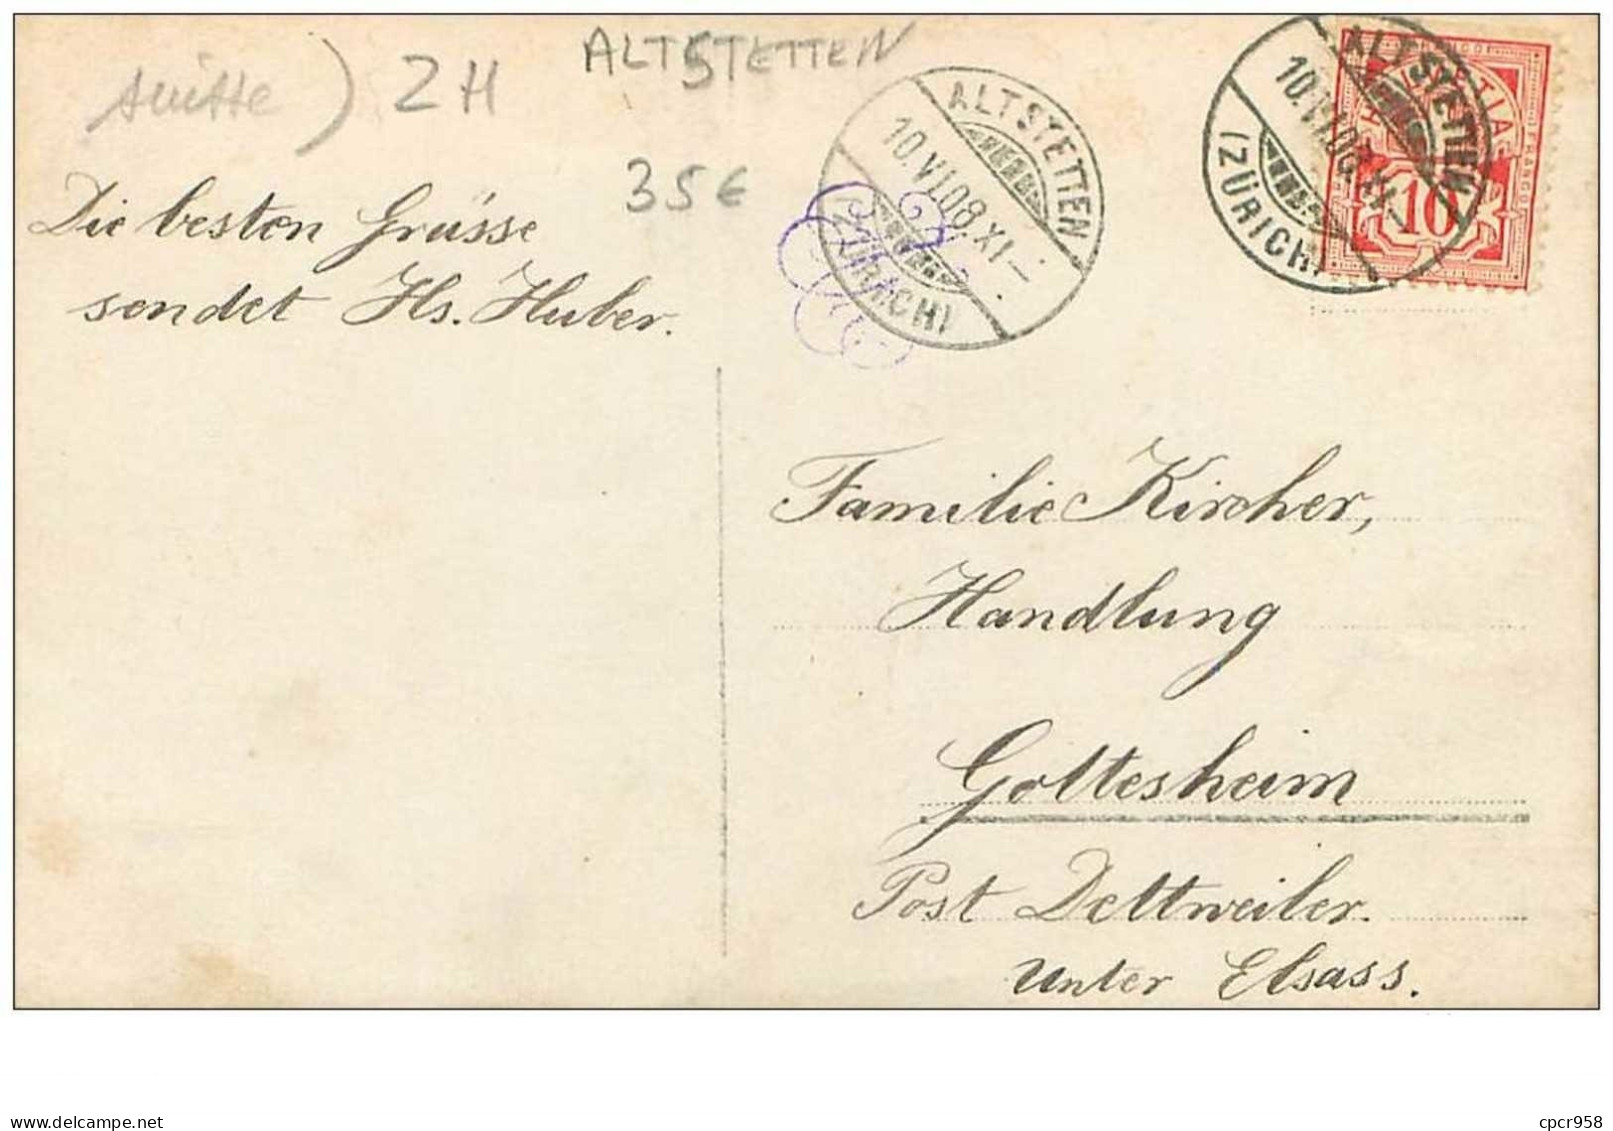 ALTSTETTEN
suisse) ZH
35€
ALTSTETTEN
10.VI.08.XI—
(ZÜRICH)
ALTSTETTEN
10.VI.08.XI—
(ZÜRICH)
10
Die besten Grüsse
sendet Hs. Huber.
Familie Kircher,
Handlung
Gottesheim
Post Dettweiler.
Unter Elsass.
delcampe.net
cpcr958